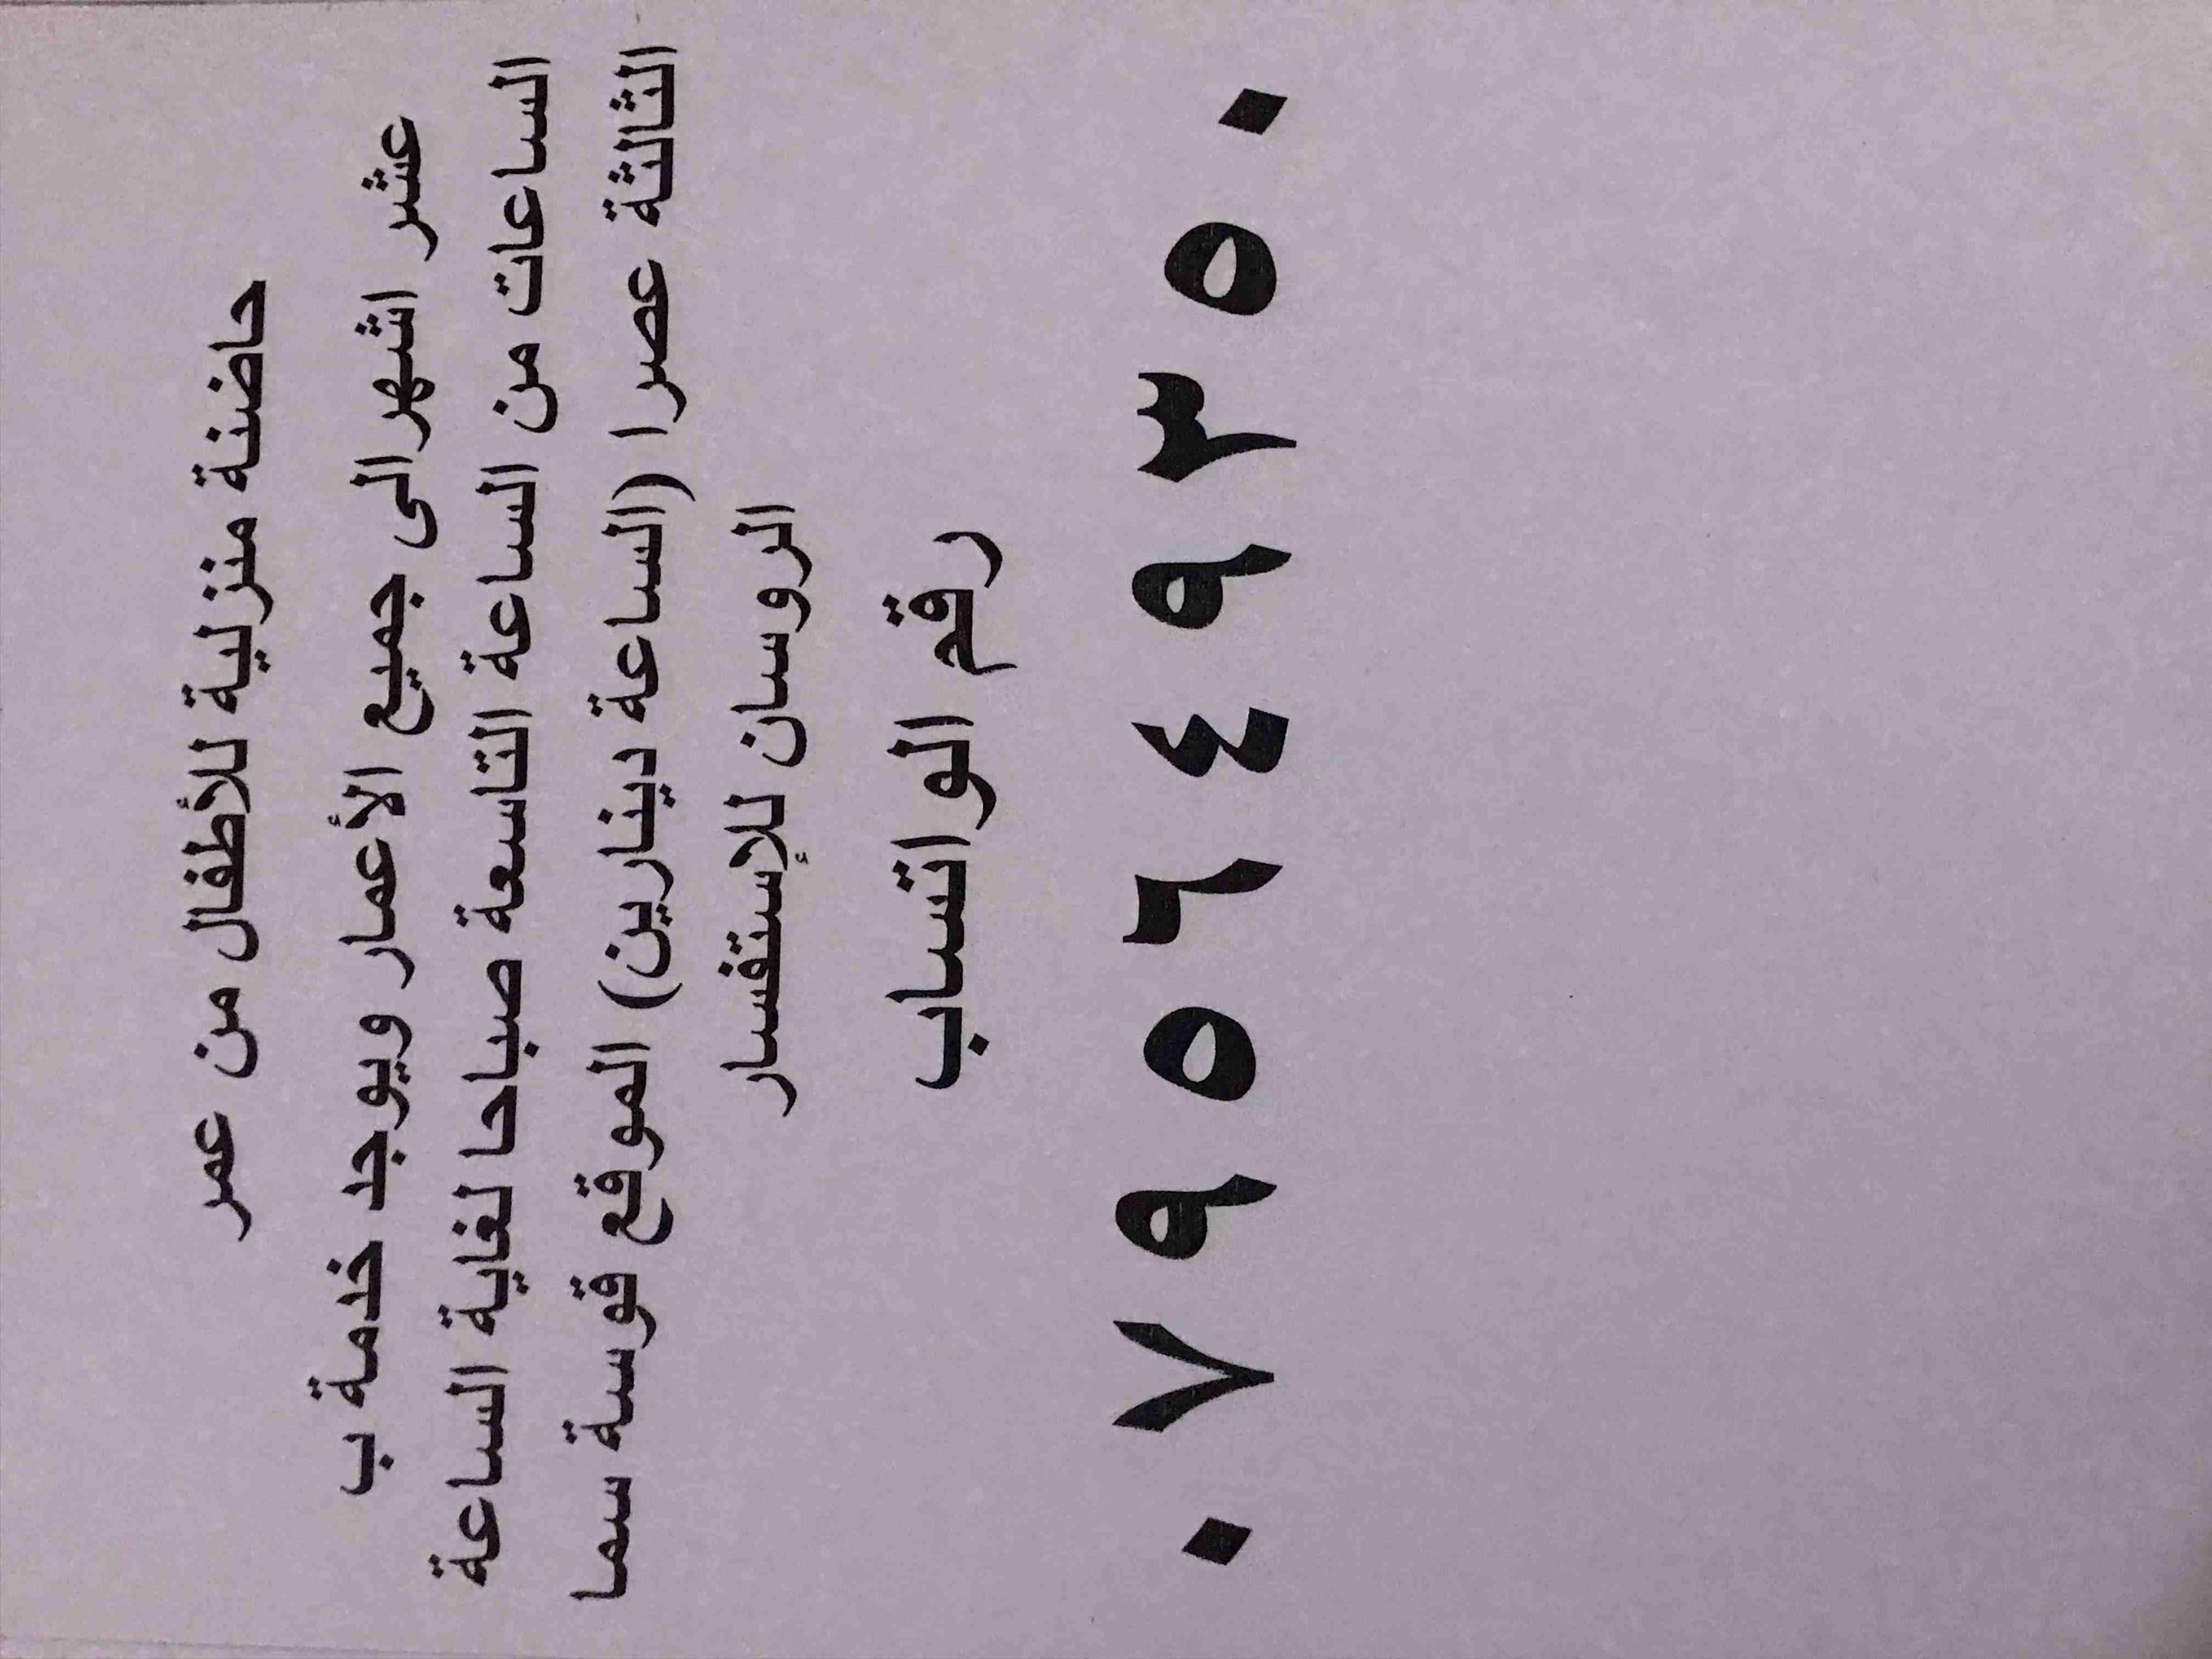 حاضنة منزلية للأطفال من عمر
عشر اشهرالى جميع الأعمار ويوجد خدمة ب
الساعات من الساعة التاسعة صباحا لغاية الساعة
الثالثة عصرا (الساعة دينارين) الموقع قوسة سما
الروسان للإستفسار
رقم الواتساب
٠٧٩٥٦٤٩٣٥٠